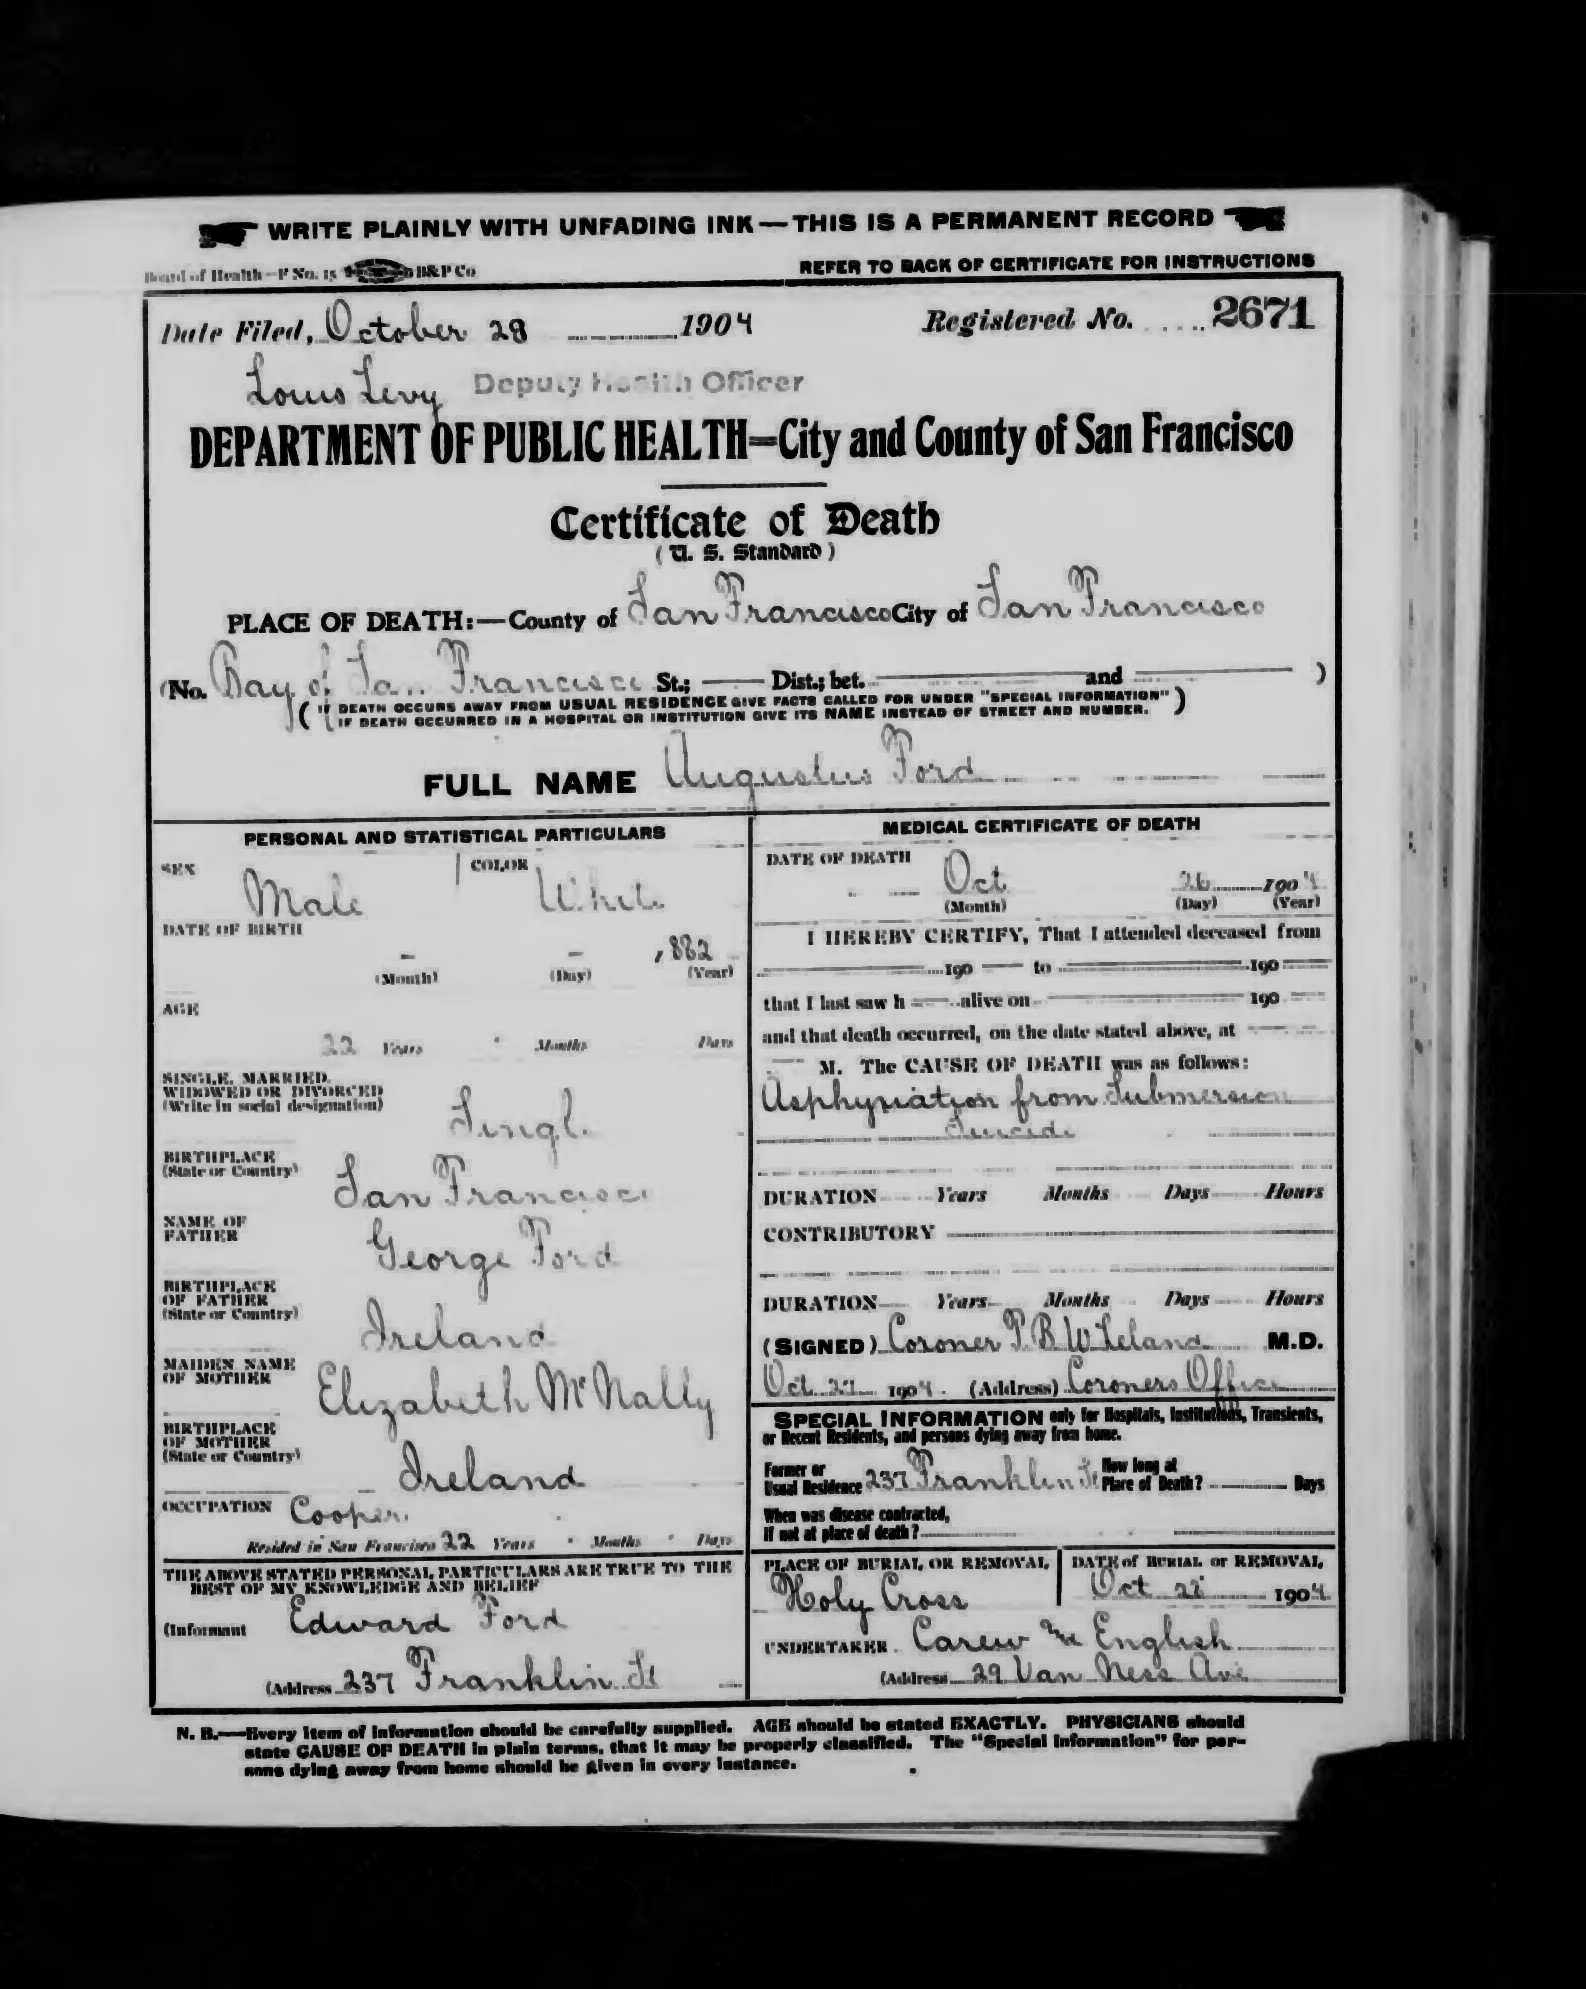 WRITE PLAINLY WITH UNFADING INK—THIS IS A PERMANENT RECORD
Board of Health—F No. 15 B&P Co
REFER TO BACK OF CERTIFICATE FOR INSTRUCTIONS
Date Filed, October 28 1904 Registered No. 2671
Louis Levy Deputy Health Officer
DEPARTMENT OF PUBLIC HEALTH=City and County of San Francisco
Certificate of Death
(U. S. Standard)
PLACE OF DEATH:—County of San Francisco City of San Francisco
(No. Bay of San Francisco St.; Dist.; bet. and )
( IF DEATH OCCURS AWAY FROM USUAL RESIDENCE GIVE FACTS CALLED FOR UNDER "SPECIAL INFORMATION" )
IF DEATH OCCURRED IN A HOSPITAL OR INSTITUTION GIVE ITS NAME INSTEAD OF STREET AND NUMBER.
FULL NAME Augustus Ford
PERSONAL AND STATISTICAL PARTICULARS
SEX Male COLOR White
DATE OF BIRTH
– – , 882
(Month) (Day) (Year)
AGE
22 Years Months Days
SINGLE, MARRIED,
WIDOWED OR DIVORCED
(Write in social designation) Singl.
BIRTHPLACE
(State or Country) San Francisco
NAME OF
FATHER George Ford
BIRTHPLACE
OF FATHER
(State or Country) Ireland
MAIDEN NAME
OF MOTHER Elizabeth McNally
BIRTHPLACE
OF MOTHER
(State or Country) Ireland
OCCUPATION Cooper.
Resided in San Francisco 22 Years Months Days
THE ABOVE STATED PERSONAL PARTICULARS ARE TRUE TO THE
BEST OF MY KNOWLEDGE AND BELIEF
(Informant Edward Ford
(Address 237 Franklin St
MEDICAL CERTIFICATE OF DEATH
DATE OF DEATH
Oct 26 1904
(Month) (Day) (Year)
I HEREBY CERTIFY, That I attended deceased from
190 to 190
that I last saw h alive on 190
and that death occurred, on the date stated above, at
M. The CAUSE OF DEATH was as follows:
Asphyxiation from Submersion
Suicide
DURATION Years Months Days Hours
CONTRIBUTORY
DURATION Years Months Days Hours
(SIGNED) Coroner T. B. W. Leland M.D.
Oct 27 1904. (Address) Coroners Office
SPECIAL INFORMATION only for Hospitals, Institutions, Transients,
or Recent Residents, and persons dying away from home.
Former or
Usual Residence 237 Franklin St How long at
Place of Death? Days
When was disease contracted,
If not at place of death?
PLACE OF BURIAL OR REMOVAL DATE of BURIAL or REMOVAL
Holy Cross Oct 28 1904
UNDERTAKER Carew and English
(Address 29 Van Ness Ave
N. B.—Every item of information should be carefully supplied. AGE should be stated EXACTLY. PHYSICIANS should
state CAUSE OF DEATH in plain terms, that it may be properly classified. The "Special Information" for per-
sons dying away from home should be given in every instance.